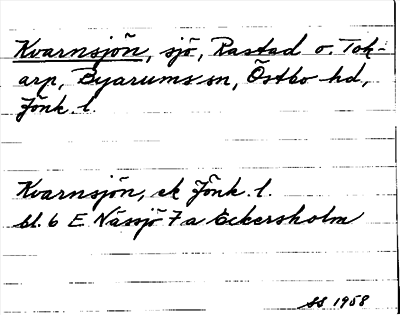 Kvarnsjön, sjö, Rastad o. Tok-
arp, Byarums sn, Östbo hd,
Jönk. l.
Kvarnsjön, ek Jönk. l.
bl. 6 E Nässjö 7 a Eckersholm
SS 1958